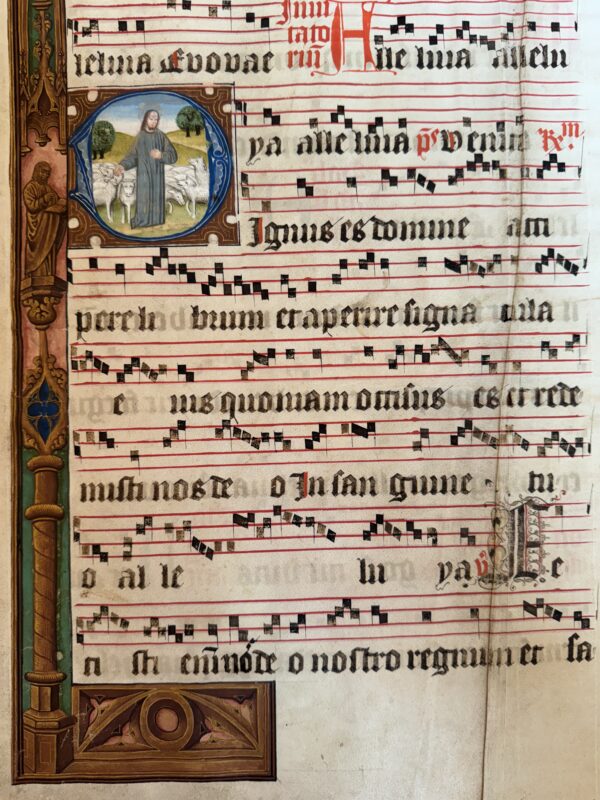 leluia Evovae Inui tato riũ Alle luia allelu
ya alleluia pẽ Venite Rm
Ignus es domine acci
pere li brum et aperire signa cula
e ius quoniam occisus es et rede
misti nos de o In san guine tu
o al le lu ya v Fe
ci sti em̃ nos de o nostro regnum et sa